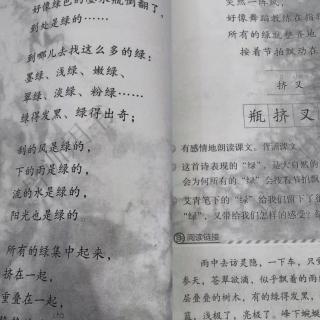 好像绿色的墨水瓶倒翻了，
到处是绿的……
到哪儿去找这么多的绿：
墨绿、浅绿、嫩绿、
翠绿、淡绿、粉绿……
绿得发黑、绿得出奇；
刮的风是绿的，
下的雨是绿的，
流的水是绿的，
阳光也是绿的。
所有的绿集中起来，
挤在一起，
重叠在一起，
突然一阵风，
好像舞蹈教练在指
所有的绿就整齐地
按着节拍飘动在
挤 叉
瓶 挤 叉
有感情地朗读课文。背诵课文。
这首诗表现的“绿”，是大自然的
会为何所有的“绿”会按着节拍飘
艾青笔下的“绿”给我们留下了
“绿”，又带给我们怎样的感受？
阅读链接
雨中去访灵隐，一下车，只觉
参天，苍翠欲滴，似乎飘着的雨
层叠叠的树木，有的绿得发黑，
蓝，浅极了，亮极了。峰下蜿蜒